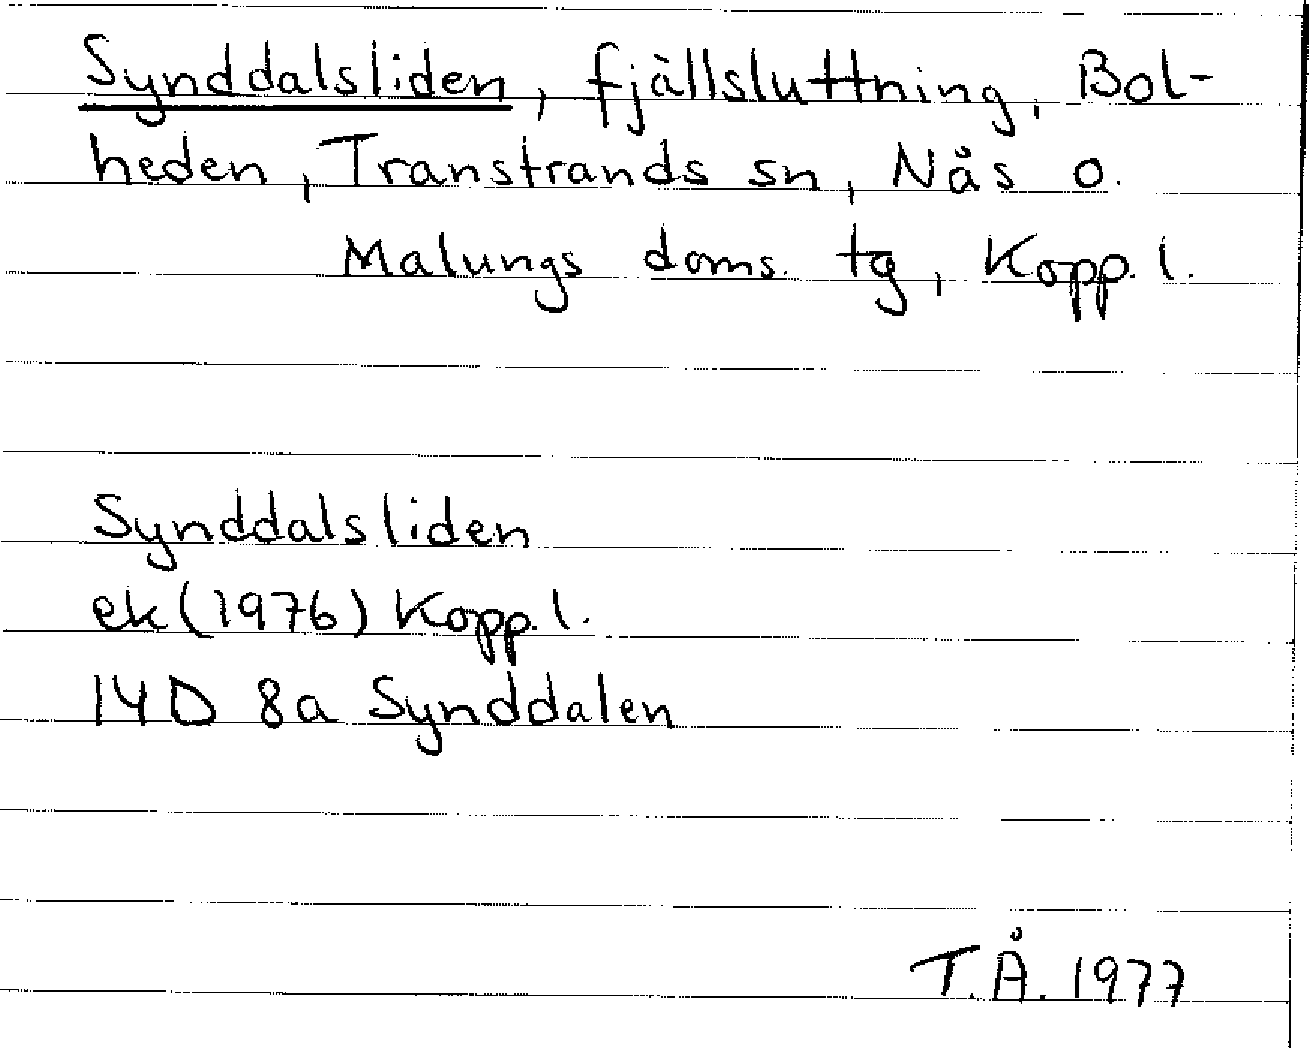 Synddalsliden, fjällsluttning, Bol-
heden, Transtrands sn, Nås o.
Malungs doms. tg, Kopp. l.
Synddalsliden
ek (1976) Kopp. l.
14D 8a Synddalen
T.Å. 1977